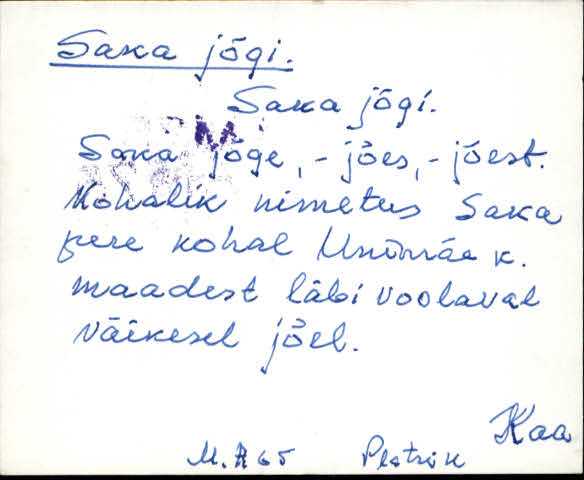 Saka jõgi.
Saka jõgi.
Saka jõge, -jões, -jõest.
Kohalik nimetus Saka
pere kohal Unimäe k.
maadest läbi voolaval
väikesel jõel.
Kaa
M. 65